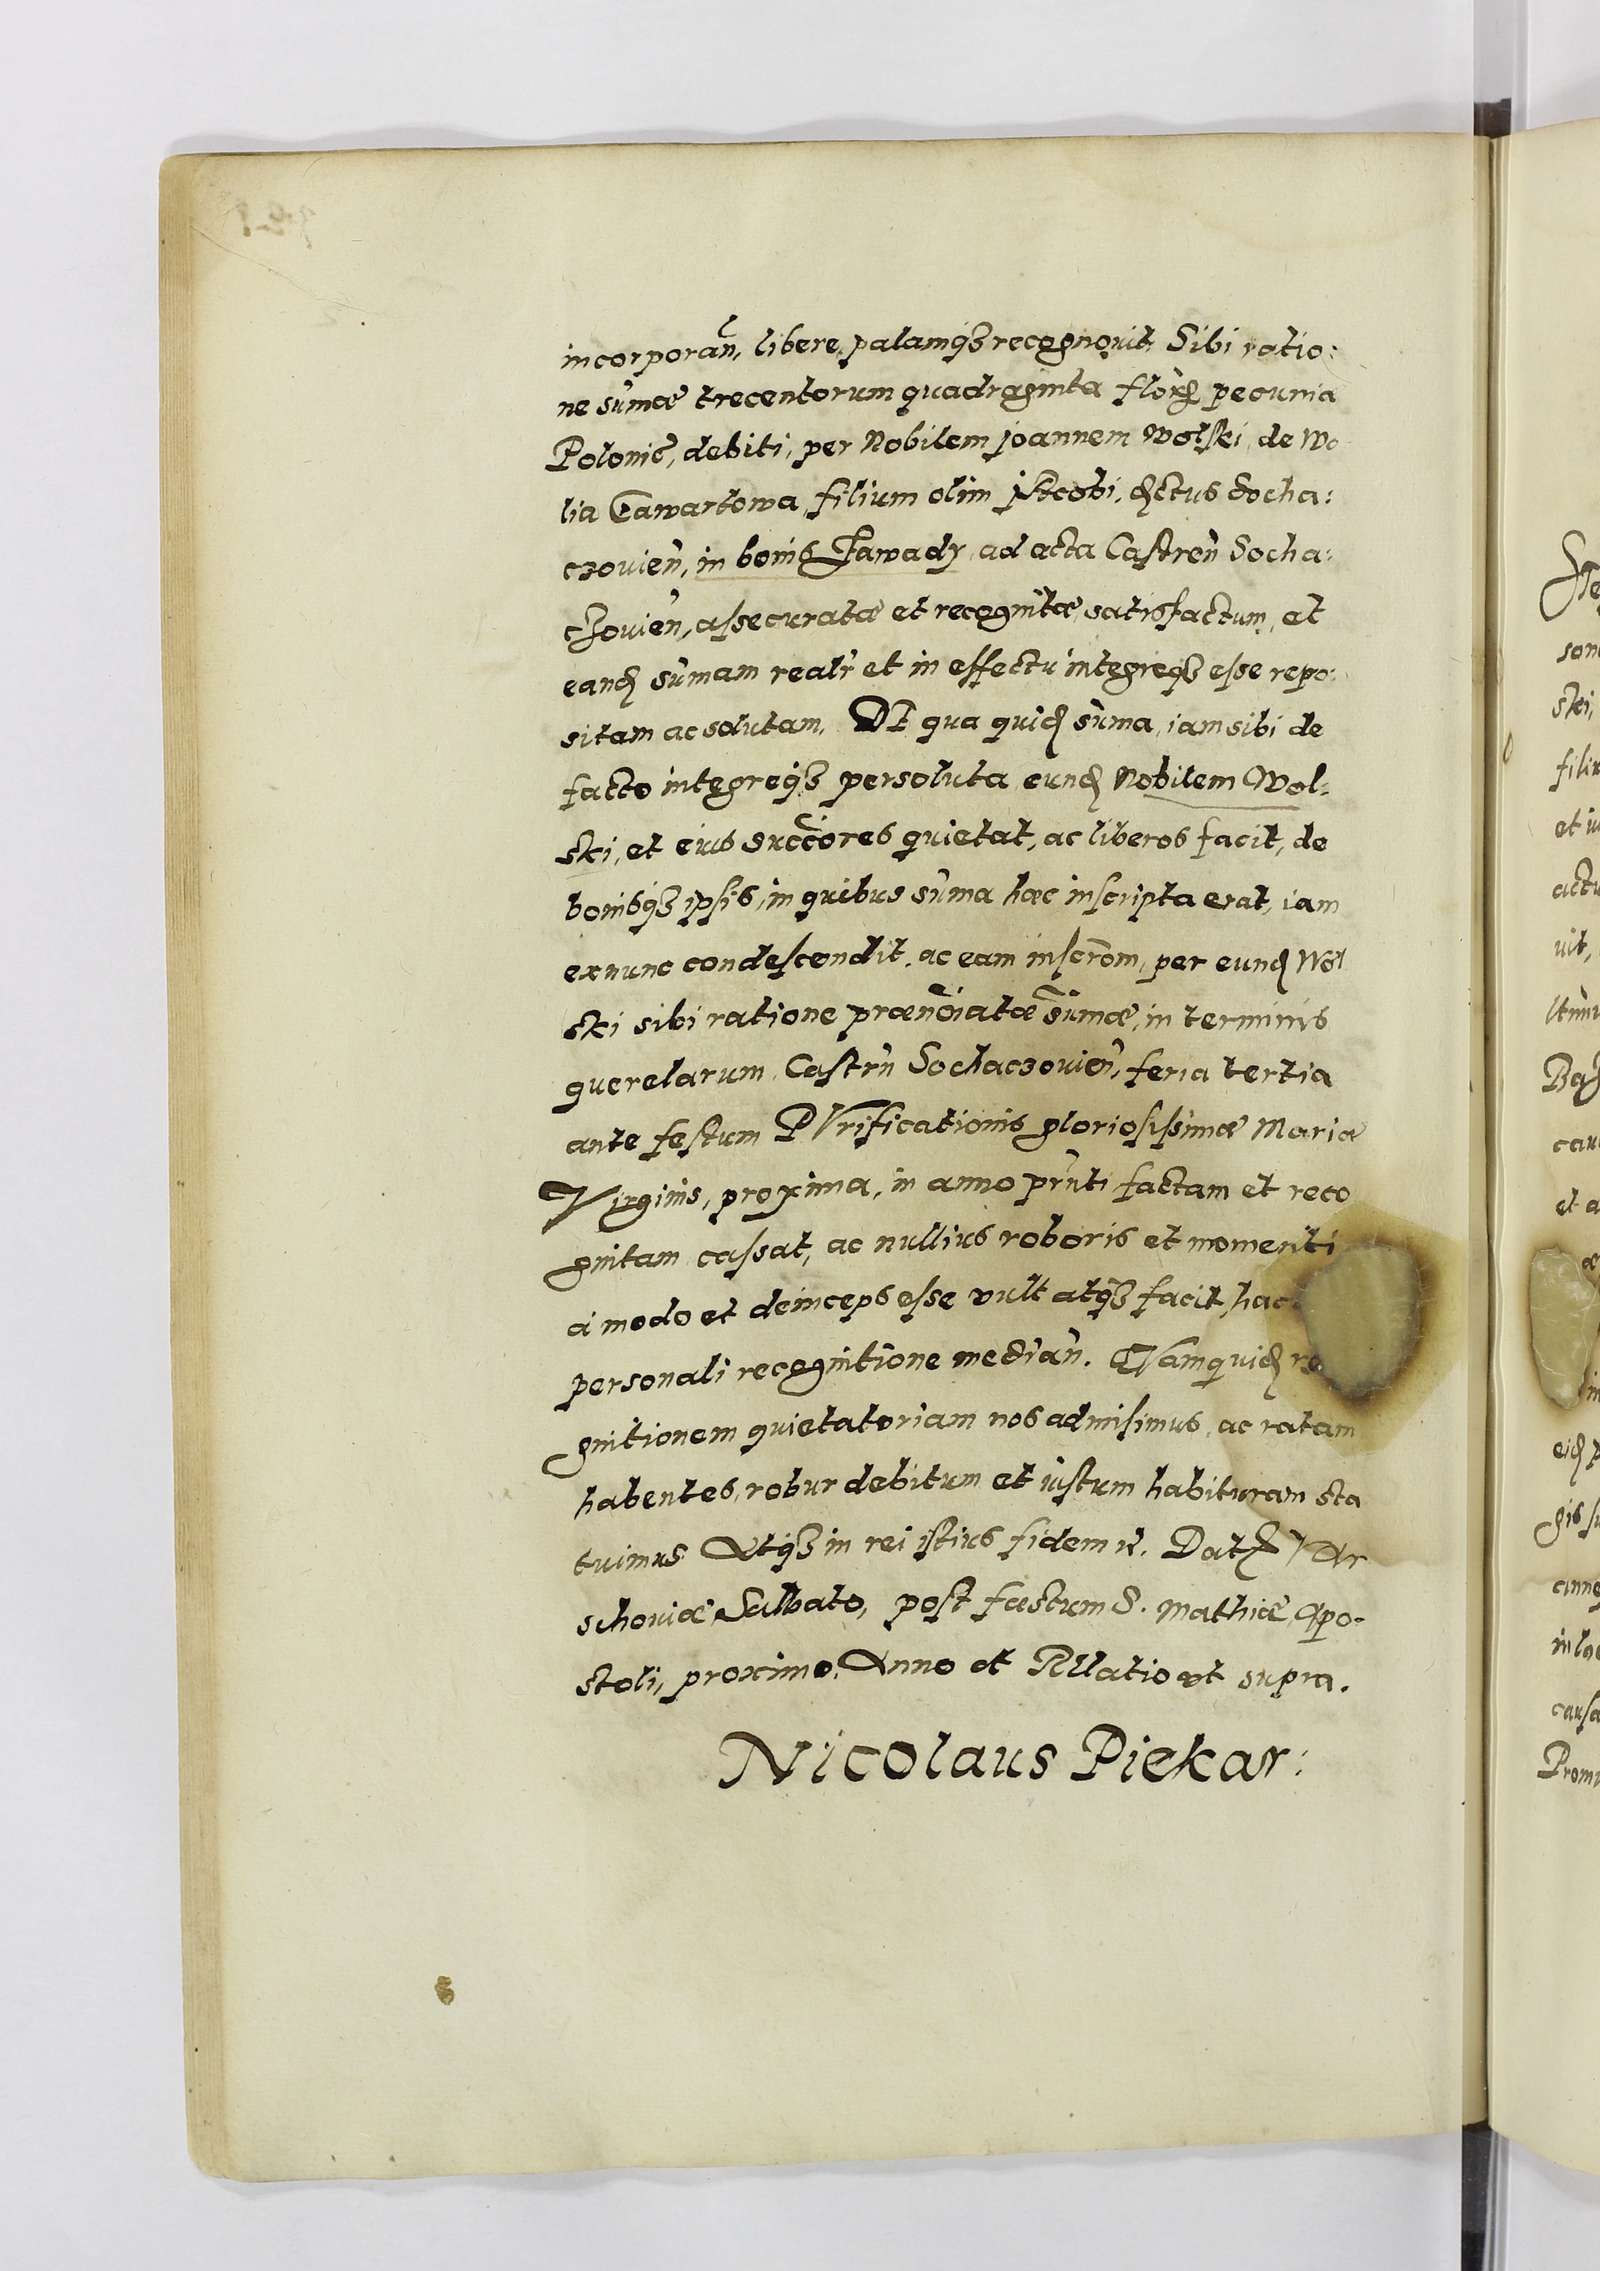 incorporan̄, libere, palamqȝ recognouit Sibi ratio:
ne sum̄æ trecentorum quadraginta florꝫ pecuniæ
Poloniē, debiti, per Nobilem Joannem Wolski, de Wo
lia Gawartowa, filium olim Jacobi, dꝫctus Socha:
czouień, in bonis Zawady, ad acta Castreń Socha:
czouień, assecuratæ et recognitæ, satisfactum, et
eandꝫ sum̄am realr̄ et in effectu integreqȝ esse repo:
sitam ac solutam. DE qua quidꝫ sum̄a, iam sibi de
facto integreqȝ persoluta, eundꝫ Nobilem Wol:
ski, et eius succ̄ores quietat, ac liberos facit, de
bonisqȝ ipsis, in quibus sum̄a hæc inscripta erat, iam
exnunc condescendit, ac eam inscrōm, per eundꝫ Wol
ski sibi ratione prænōiatæ sum̄æ, in terminis
querelarum, Castrń Sochaczouień, feria tertia
ante festum PVrificationis gloriosissimæ Mariæ
Virginis, proxima, in anno prn̄ti factam et reco
gnitam cassat, ac nullius roboris et momenti
a modo et deinceps esse vult atqȝ facit hac
personali recognitione mediań. QVam quidꝫ re
gnitionem quietatoriam nos admisimus, ac ratam
habentes, robur debitum et iustum habituram sta
tuimus Atqȝ in rei istius fidem ꝛc. Datꝫ VAr
schouiæ Sabbato, post festum S. Mathiæ, Apo-
stoli, proximo, Anno et Rllatio ut supra.
Nicolaus Piekar: